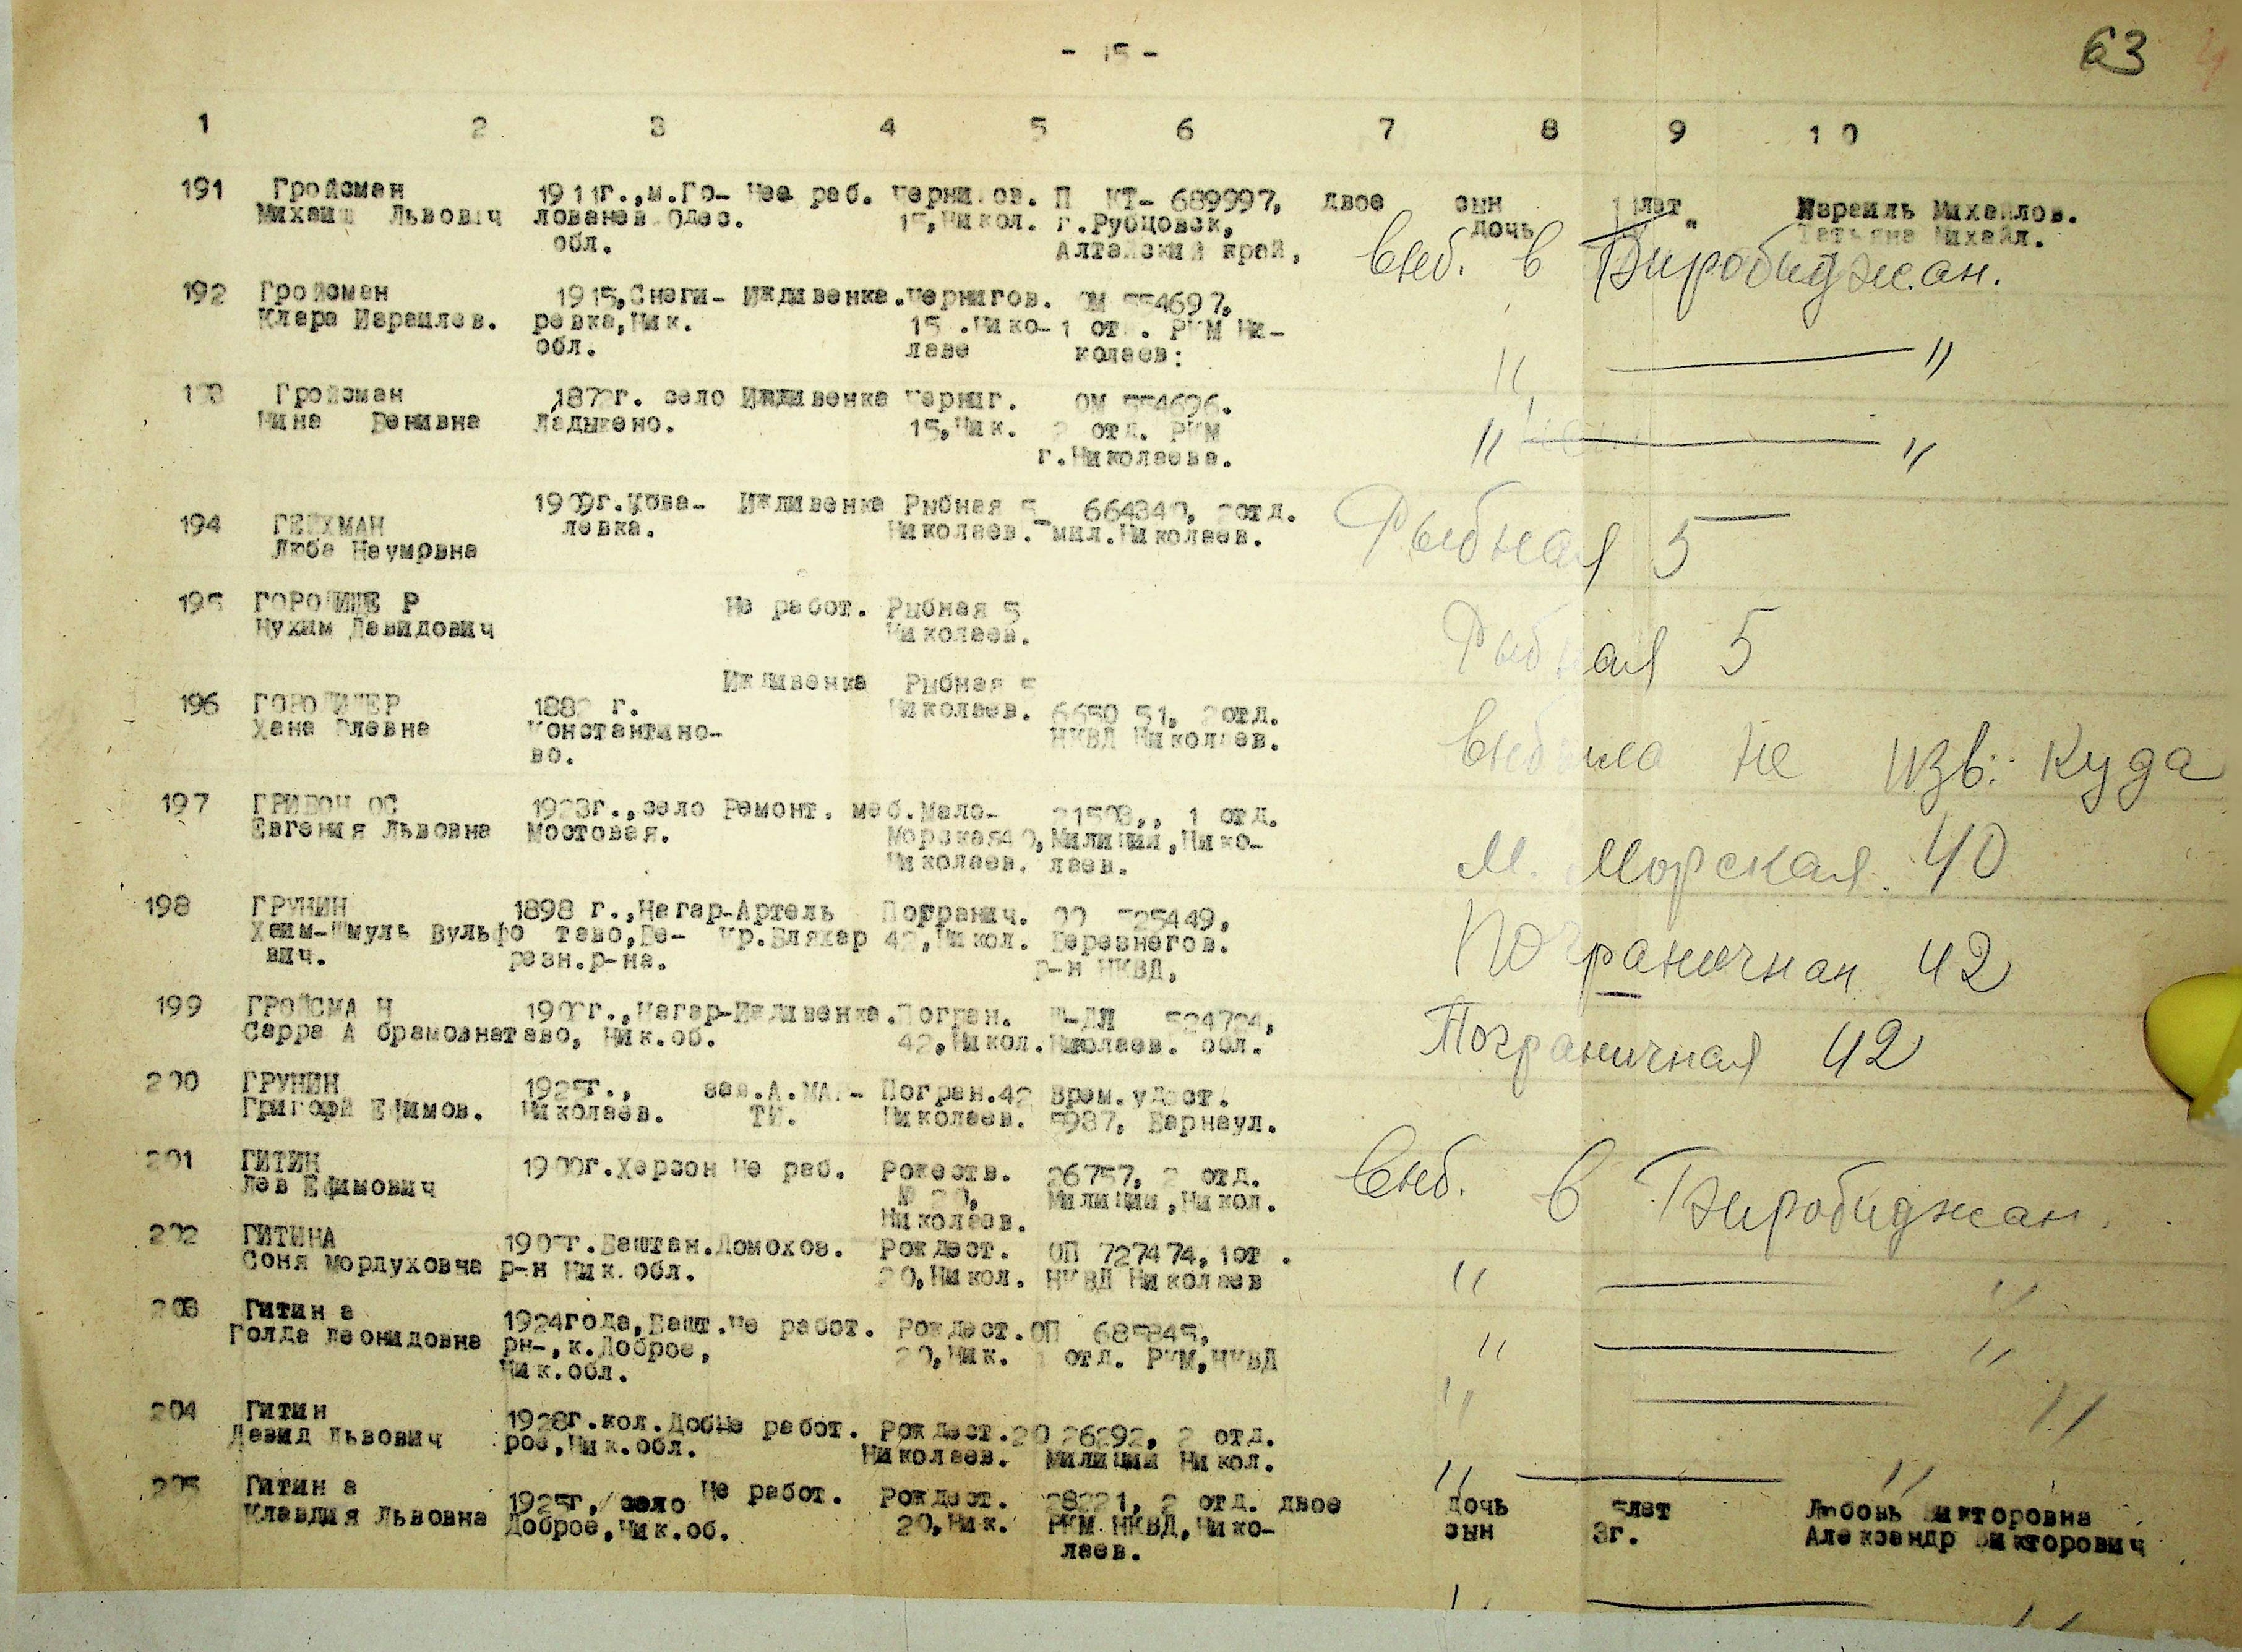 - 15 -
63
1 2 3 4 5 6 7 8 9 10
191 Гройсман 1911г.,м.Го- Не раб. Черни ов. П КТ- 689997, двое сын 11лет Израиль Михайлов.
Михаил Львович лованев Одес. 15,Никол. г.Рубцовск, дочь " Татьяна Михайл.
обл. Алтайский край,
выб. в Биробиджан.
192 Гройсман 1915,Снеги- Иждивенка.Чернигов. ОМ 554697,
Клара Израилев. ревка,Ник. 15 .Нико- 1 от . РКМ Ни-
обл. лаев колаев:
" — "
193 Гройсман 187 г. село Иждивенка Черниг. ОМ 554696.
Нина Бенивна Ладыжено. 15,Ник. 2 отд. РКМ
г.Николаева.
" — "
1909г.Кова- Иждивенка Рыбная 5 664340, 2отд.
194 ГЕЙХМАН левка. Николаев. мил.Николаев.
Люба Наумовна
Рыбная 5
195 ГОРОДИЩЕ Р Не работ. Рыбная 5
Нухим Давидович Николаев.
Рыбная 5
Иждивенка Рыбная 5
196 ГОРОДИЩЕР 1882 г. Николаев. 6650 51, 2отд.
Хана Константино- НКВД Николаев.
во.
выбыла не изв. куда
197 1923г.,село Ремонт. меб.Мало- 21503,, 1 отд.
Евгения Львовна Мостовая. Морская40,Милиции,Нико-
Николаев. лаев.
М. Морская. 40
198 ГРУНИН 1898 г.,Нагар-Артель Погранич. 525449,
Хаим-Шмуль Вульфо таво,Бе- Кр.Бляхар 42,Никол. Березнегов.
вич. резн.р-на. р-н НКВД,
Пограничная 42
199 ГРОЙСМА Н 190 г.,Нагар-Иждивенка.Погран. 524724,
Сарра А брамовнатаво, Ник.об. 42,Никол.Николаев. обл.
Пограничная 42
200 ГРУНИН 1925г., зав.А.МА - Погран.42 Врем.удост.
Григорй Ефимов. Николаев. ТИ. Николаев. 5937, Барнаул.
201 ГИТИН 1900г.Херсон Не раб. Рожеств. 26757, 2 отд.
Лев Ефимович № 20, Милиции,Никол.
Николаев.
выб. в Биробиджан.
202 ГИТИНА 190 г.Баштан.Домохоз. Рождест. ОП 727474,1от .
Соня Мордуховна р-н Ник.обл. 20,Никол. НКВД Николаев
" — "
203 Гитин а 1924года,Башт.Не работ. Рождест.ОП 685845,
Голда Леонидовна рн-,к.Доброе, 20,Ник. отд. РКМ,НКВД
Ник.обл.
" — "
204 Гитин 1928г.кол.ДобНе работ. Рождест.20 26292, 2 отд.
Давид Львович рое,Ник.обл. Николаев. Милиции Никол.
" — "
" — "
205 Гитин а 1925г,/село Не работ. Рождест. 28221, 2 отд. двое дочь 5лет Любовь Викторовна
Клавдия Львовна Доброе,Ник.об. 20,Ник. РКМ НКВД,Нико- сын 3г. Александр Викторович
лаев.
" — "